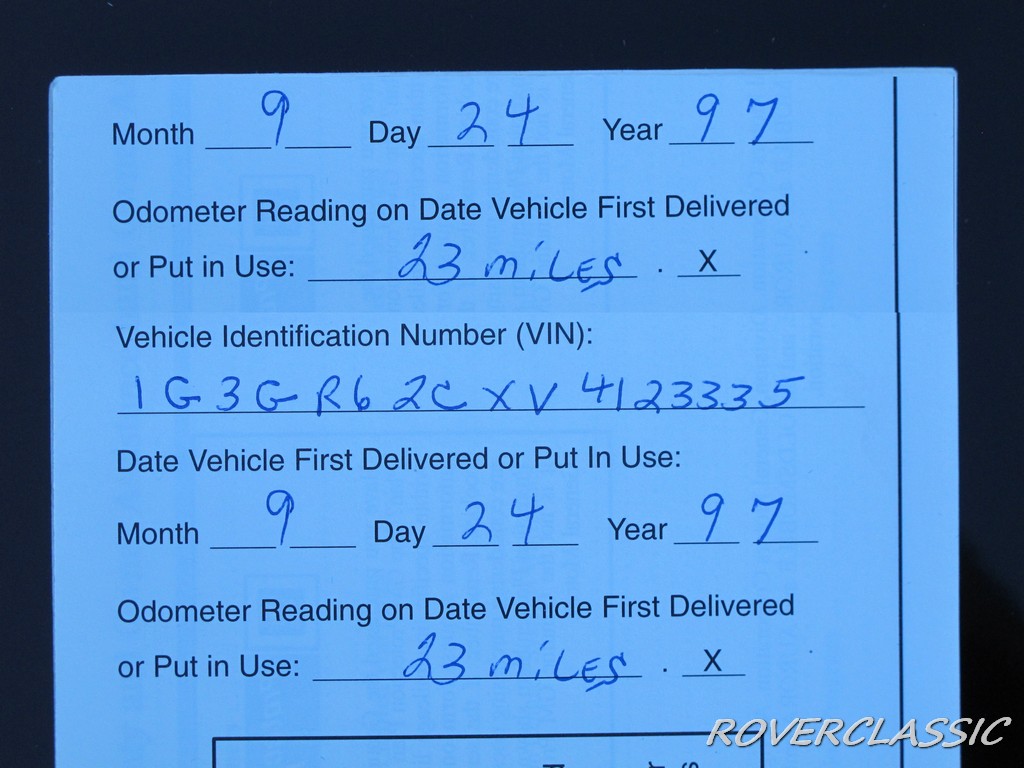 Month 9 Day 24 Year 97
Odometer Reading on Date Vehicle First Delivered
or Put in Use: 23 miles . X
Vehicle Identification Number (VIN):
1G3GR62CXV4123335
Date Vehicle First Delivered or Put In Use:
Month 9 Day 24 Year 97
Odometer Reading on Date Vehicle First Delivered
or Put in Use: 23 miles . X
ROVERCLASSIC